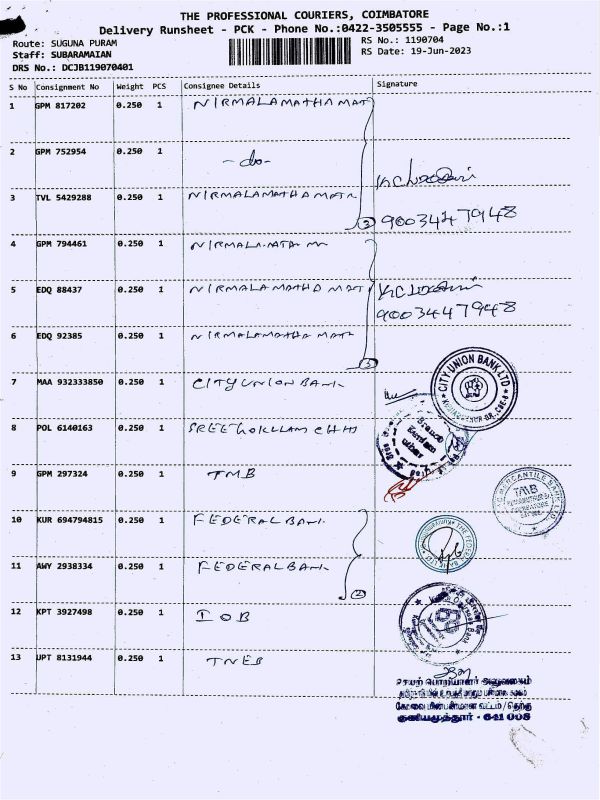 THE PROFESSIONAL COURIERS, COIMBATORE
Delivery Runsheet - PCK - Phone No.:0422-3505555 - Page No.:1
Route: SUGUNA PURAM
RS No.: 1190704
Staff: SUBARAMAIAN
RS Date: 19-Jun-2023
DRS No.: DCJB119070401
S No Consignment No Weight PCS Consignee Details Signature
1 GPM 817202 0.250 1 NIRMALAMATHA MAT
2 GPM 752954 0.250 1 -do-
3 TVL 5429288 0.250 1 NIRMALAMATHA MAT
3 9003447948
4 GPM 794461 0.250 1 NIRMALAMATA M
5 EDQ 88437 0.250 1 NIRMALAMATHA MAT
9003447948
6 EDQ 92385 0.250 1 NIRMALAMATHA MAT
3
7 MAA 932333850 0.250 1 CITY UNION BANK
CITY UNION BANK LTD
8 POL 6140163 0.250 1 SREE GOKULAM CHIT
9 GPM 297324 0.250 1 TMB
MERCANTILE BANK LTD
TMB
10 KUR 694794815 0.250 1 FEDERAL BANK
THE FEDERAL BANK LTD
11 AWY 2938334 0.250 1 FEDERAL BANK
2
12 KPT 3927498 0.250 1 IOB
13 UPT 8131944 0.250 1 TNEB
செயற் பொறியாளர் அலுவலகம்
கோவை மின் பகிர்மான வட்டம் / தெற்கு
குனியமுத்தூர் - 641 008